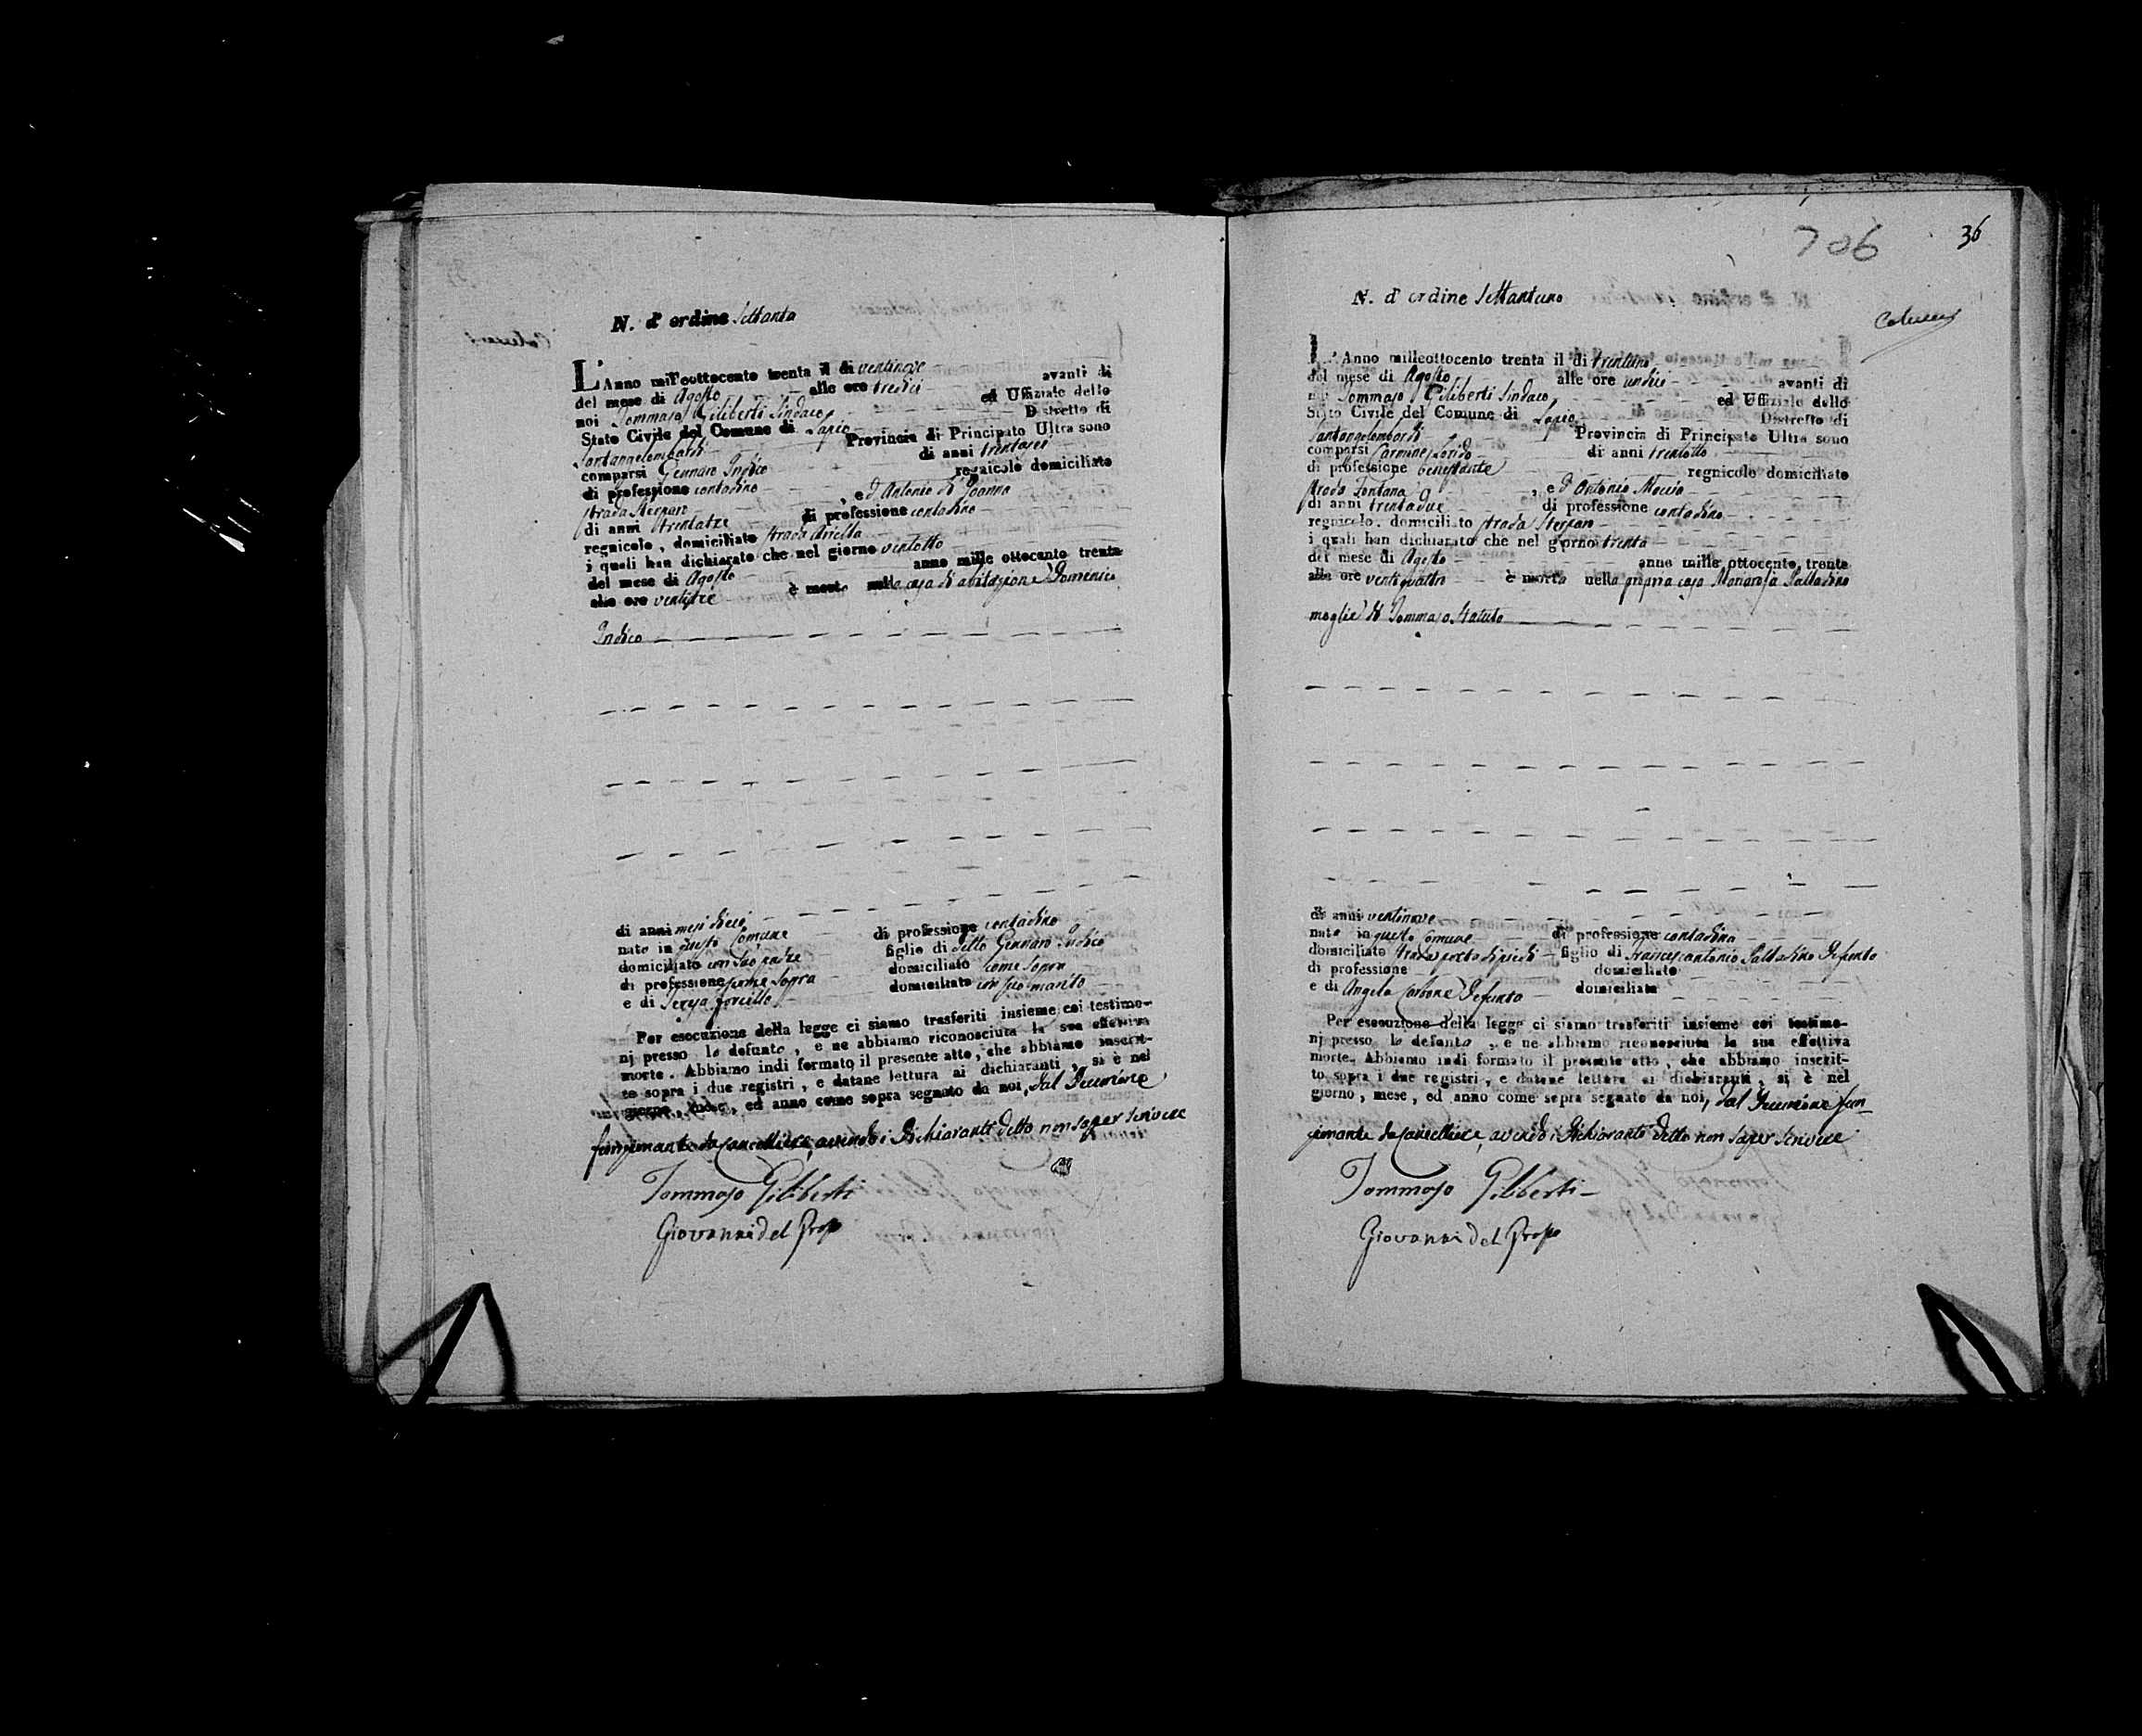 N. d' ordine Settanta
L'Anno mill'eottocento trenta il di ventinove
del mese di Agosto alle ore tredici avanti di
noi Tommaso Giliberti Sindaco ed Uffiziale dello
Stato Civile del Comune di Lapio Distretto di
Santangelombardi Provincia di Principato Ultra sono
comparsi Gennaro Indico di anni trentasei
di professione contadino regnicolo domiciliato
strada , ed Antonio di Joanna
di anni trentatre di professione contadino
regnicolo , domiciliato strada Ariella
i quali han dichiarato che nel giorno ventotto
del mese di Agosto anno mille ottocento trenta
alle ore ventitre è morto nella casa di abitazione Domenico
Indico
di anni mesi dieci di professione contadino
nato in questo Comune figlio di detto Gennaro Indico
domiciliato con suo padre domiciliato come sopra
di professione come sopra domiciliato con suo marito
e di Teresa Forcillo
Per esecuzione della legge ci siamo trasferiti insieme coi testimo-
nj presso lo defunto , e ne abbiamo riconosciuta la sua effettiva
morte . Abbiamo indi formato il presente atto , che abbiamo inscrit-
to sopra i due registri , e datane lettura ai dichiaranti , si è nel
giorno , mese , ed anno come sopra segnato da noi, dal Decurione
funzionante da Cancelliere, avendo i Dichiaranti detto non saper scrivere
Tommaso Giliberti
Giovanni del Prospo
706
36
N. d' ordine Settantuno
L'Anno milleottocento trenta il di trentuno
del mese di Agosto alle ore undici avanti di
noi Tommaso Giliberti Sindaco ed Uffiziale dello
Stato Civile del Comune di Lapio Distretto di
Santangelombardi Provincia di Principato Ultra sono
comparsi Carmine di anni trentotto
di professione benestante regnicolo domiciliato
strada Fontana , ed Antonio Moccia
di anni trentadue di professione contadino
regnicolo . domiciliato strada
i quali han dichiarato che nel giorno trenta
del mese di Agosto anno mille ottocento trenta
alle ore ventiquattro è morta nella propria casa Mariarosa Palladino
moglie di Tommaso Statuto
di anni ventinove
nata in questo Comune di professione contadina
domiciliato strada porta di piedi figlio di Francescantonio Palladino Defunto
di professione domiciliato
e di Angela Carbone Defunta domiciliata
Per esecuzione della legge ci siamo trasferiti insieme coi testimo-
nj presso la defunta , e ne abbiamo riconosciuta la sua effettiva
morte. Abbiamo indi formato il presente atto , che abbiamo inscrit-
to sopra i due registri , e datane lettura ai dichiaranti , si è nel
giorno , mese , ed anno come sopra segnato da noi, dal Decurione fun-
zionante da Cancelliere, avendo i Dichiaranti detto non saper scrivere
Tommaso Giliberti
Giovanni del Prospo